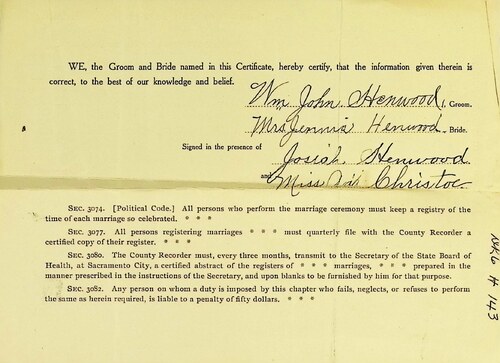 WE, the Groom and Bride named in this Certificate, hereby certify, that the information given therein is
correct, to the best of our knowledge and belief.
Wm John Henwood, Groom.
Mrs Jennie Henwood, Bride.
Signed in the presence of
Josiah Henwood
and Miss Christoe
SEC. 3074. [Political Code.] All persons who perform the marriage ceremony must keep a registry of the
time of each marriage so celebrated. * * *
SEC. 3077. All persons registering marriages * * * must quarterly file with the County Recorder a
certified copy of their register. * * *
SEC. 3080. The County Recorder must, every three months, transmit to the Secretary of the State Board of
Health, at Sacramento City, a certified abstract of the registers of * * * marriages, * * * prepared in the
manner prescribed in the instructions of the Secretary, and upon blanks to be furnished by him for that purpose.
SEC. 3082. Any person on whom a duty is imposed by this chapter who fails, neglects, or refuses to perform
the same as herein required, is liable to a penalty of fifty dollars. * * *
143